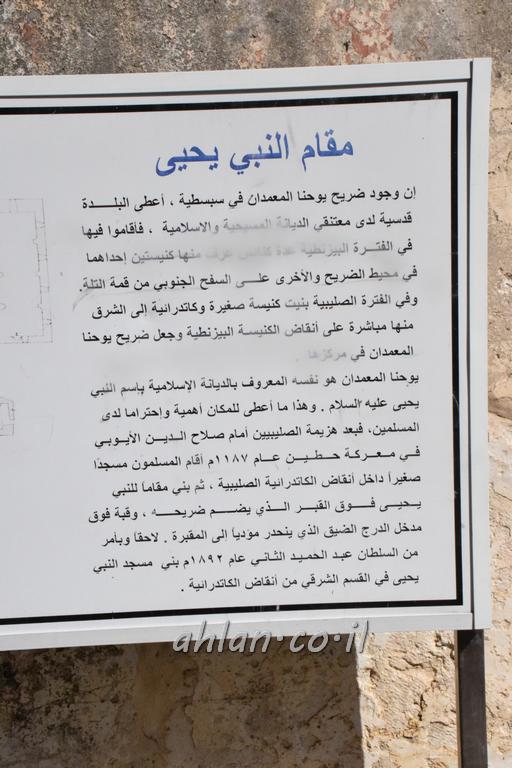 مقام النبي يحيى
إن وجود ضريح يوحنا المعمدان في سبسطية ، أعطى البلدة
قدسية لدى معتنقي الديانة المسيحية والاسلامية ، فأقاموا فيها
في الفترة البيزنطية عدة كنائس عرف منها كنيستين إحداهما
في محيط الضريح والأخرى على السفح الجنوبي من قمة التلة.
وفي الفترة الصليبية بنيت كنيسة صغيرة وكاتدرائية إلى الشرق
منها مباشرة على أنقاض الكنيسة البيزنطية وجعل ضريح يوحنا
المعمدان في مركزها .
يوحنا المعمدان هو نفسه المعروف بالديانة الإسلامية بإسم النبي
يحيى عليه السلام . وهذا ما أعطى للمكان أهمية وإحتراما لدى
المسلمين، فبعد هزيمة الصليبيين أمام صلاح الدين الأيوبي
في معركة حطين عام ١١٨٧م أقام المسلمون مسجدًا
صغيراً داخل أنقاض الكاتدرائية الصليبية ، ثم بني مقاماً للنبي
يحيى فوق القبر الذي يضم ضريحه ، وقبة فوق
مدخل الدرج الضيق الذي ينحدر مؤدياً إلى المقبرة . لاحقاً وبأمر
من السلطان عبد الحميد الثاني عام ١٨٩٢م بني مسجد النبي
يحيى في القسم الشرقي من أنقاض الكاتدرائية .
ahlan·co·il